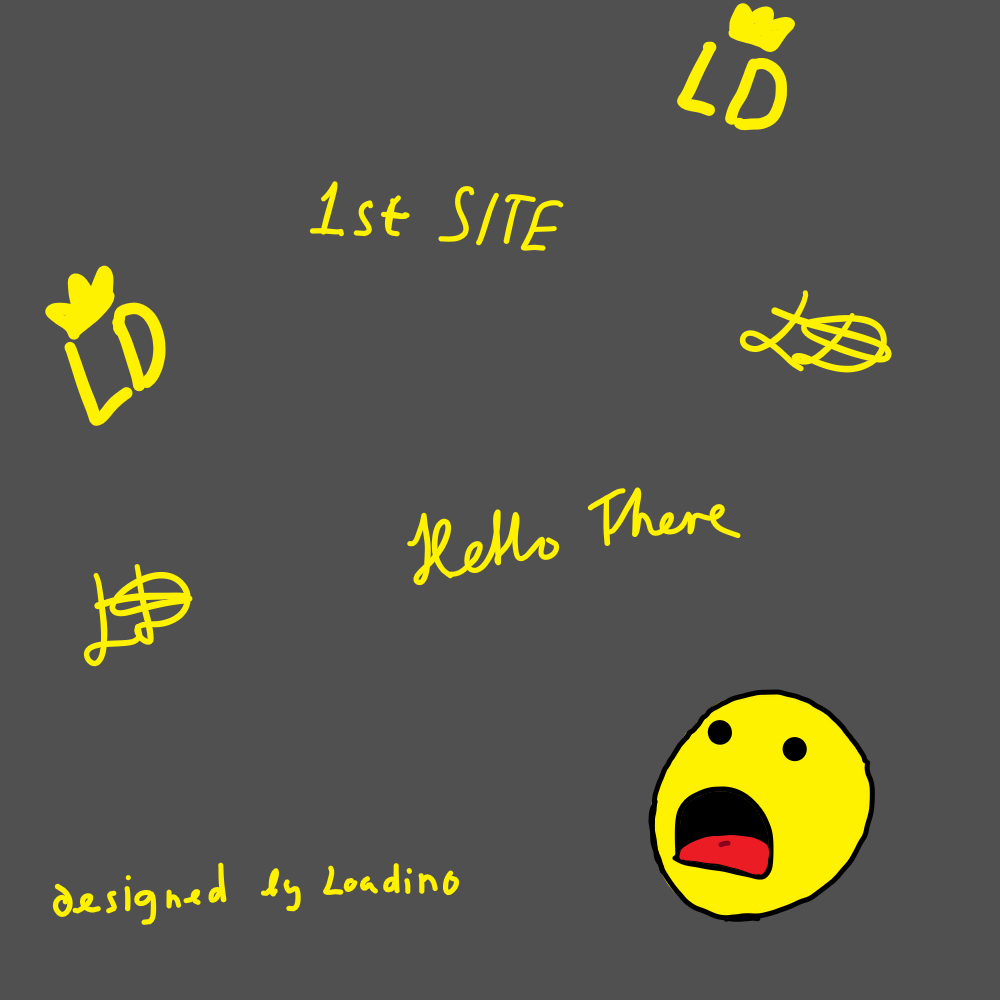 LD
1st SITE
LD
LD
Hello There
LD
designed by Loadino